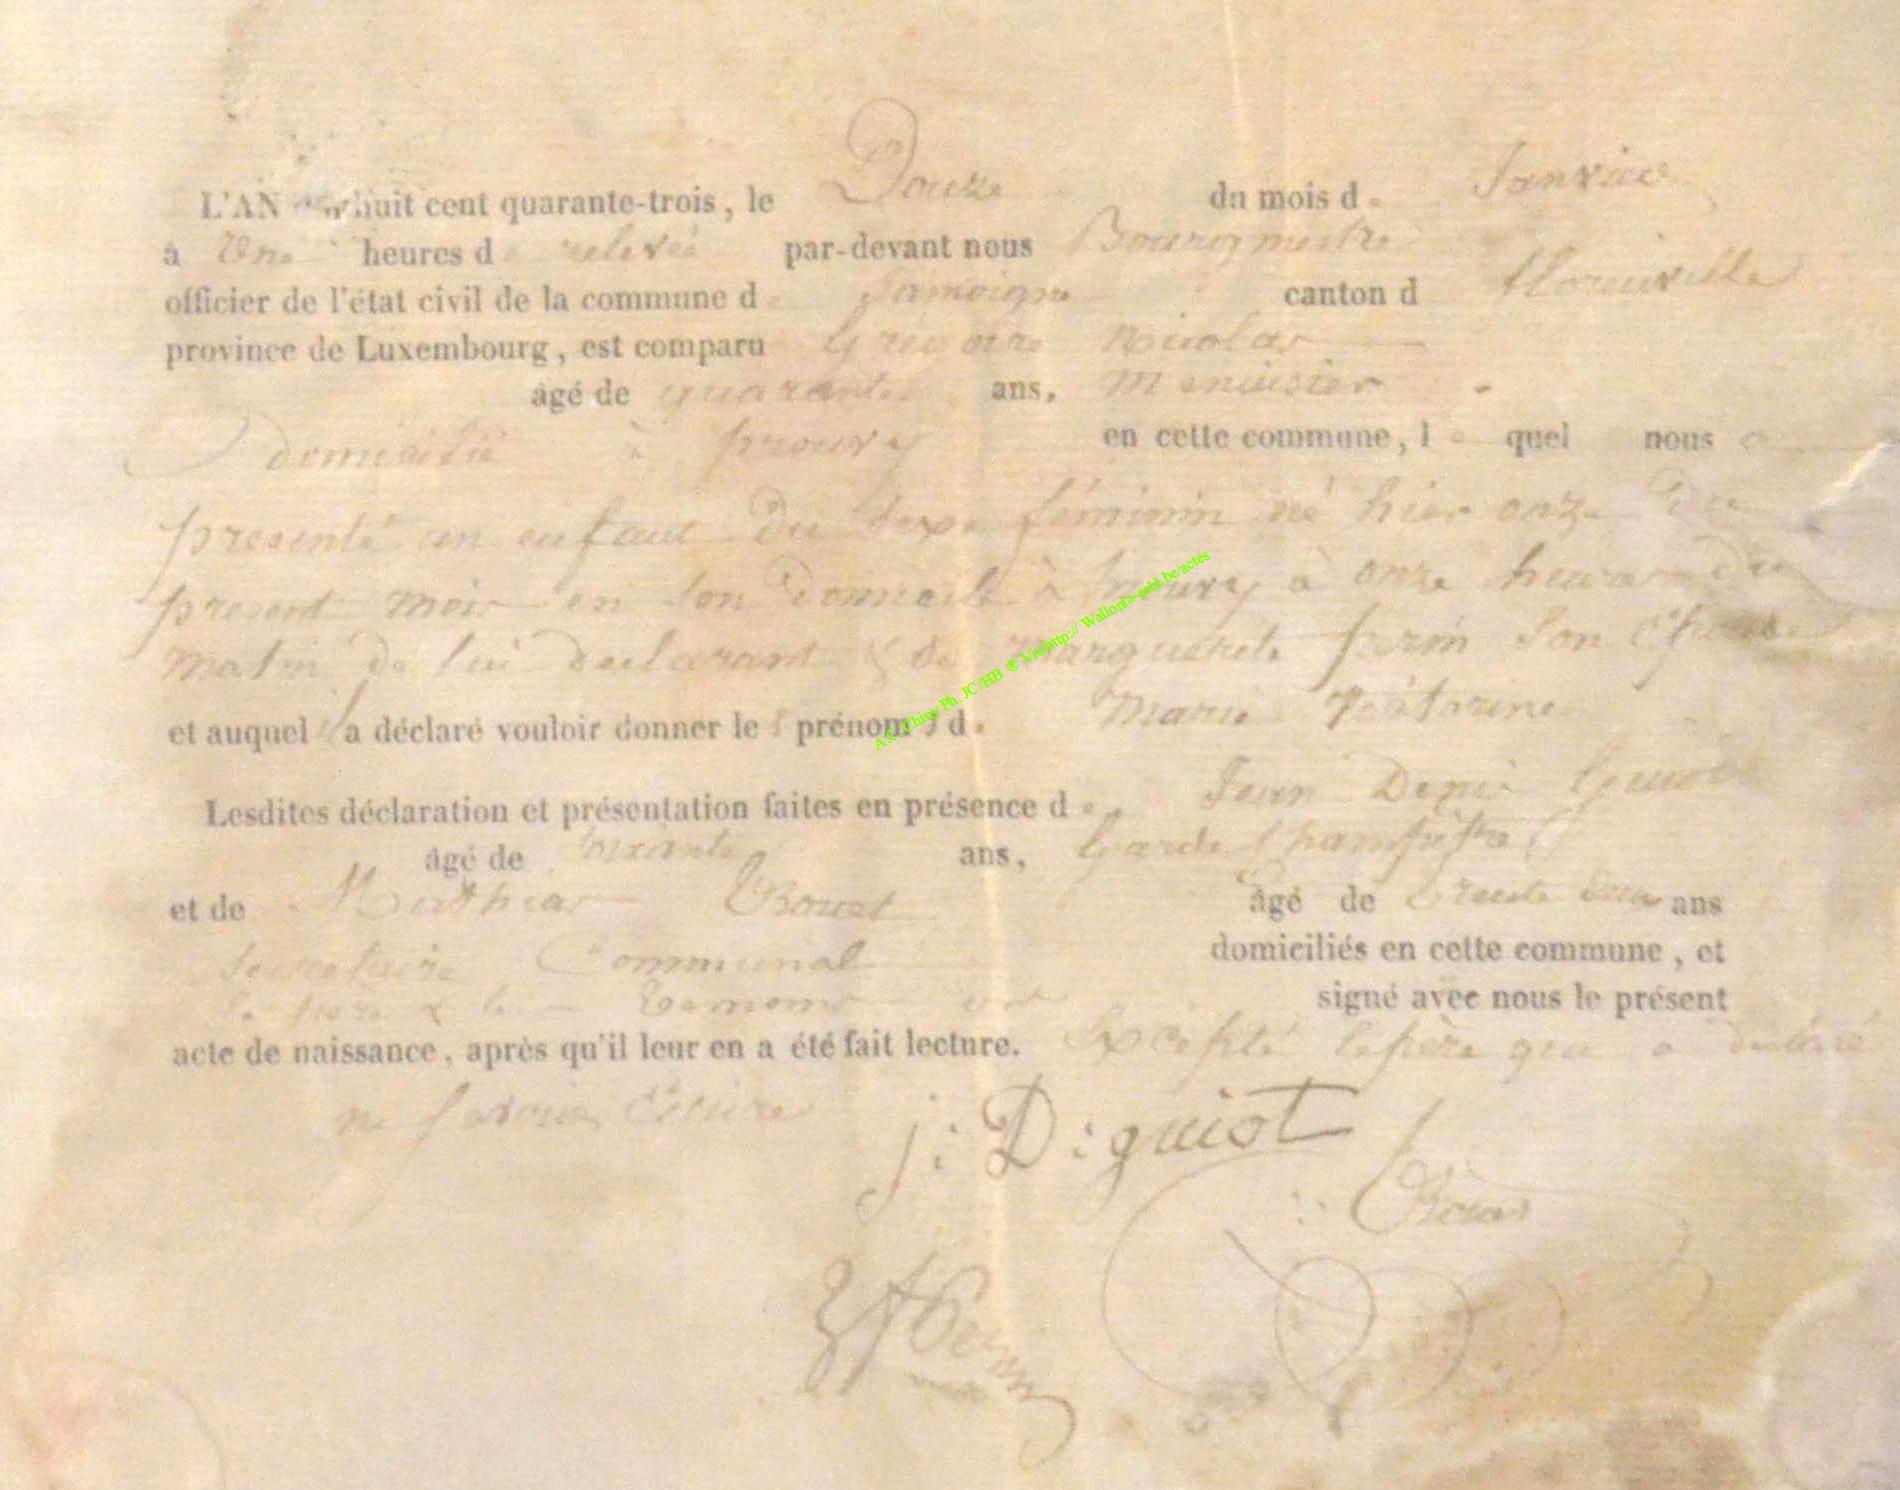 L'AN huit cent quarante-trois, le Douze du mois de Janvier
à Une heures de relevée par-devant nous Bourgmestre
officier de l'état civil de la commune de Jamoigne canton d florenville
province de Luxembourg, est comparu Grégoire Nicolas
âgé de quarante ans, Menuisier
domicilié à prouvy en cette commune, le quel nous a
presenté un enfant du sexe féminin né hier onze du
present mois en son domicile à prouvy à onze heures du
matin de lui declarant & de marguerite perin son Epouse
et auquel il a déclaré vouloir donner les prénoms de Marie
Lesdites déclaration et présentation faites en présence de Jean
âgé de soixante ans, Garde Champêtre
et de Mathias âgé de trente deux ans
Secretaire Communal domiciliés en cette commune, et
le pere & les temoins ont signé avec nous le présent
acte de naissance, après qu'il leur en a été fait lecture. Excepté le père qui a declaré
ne savoir Ecrire
j: D: guiot